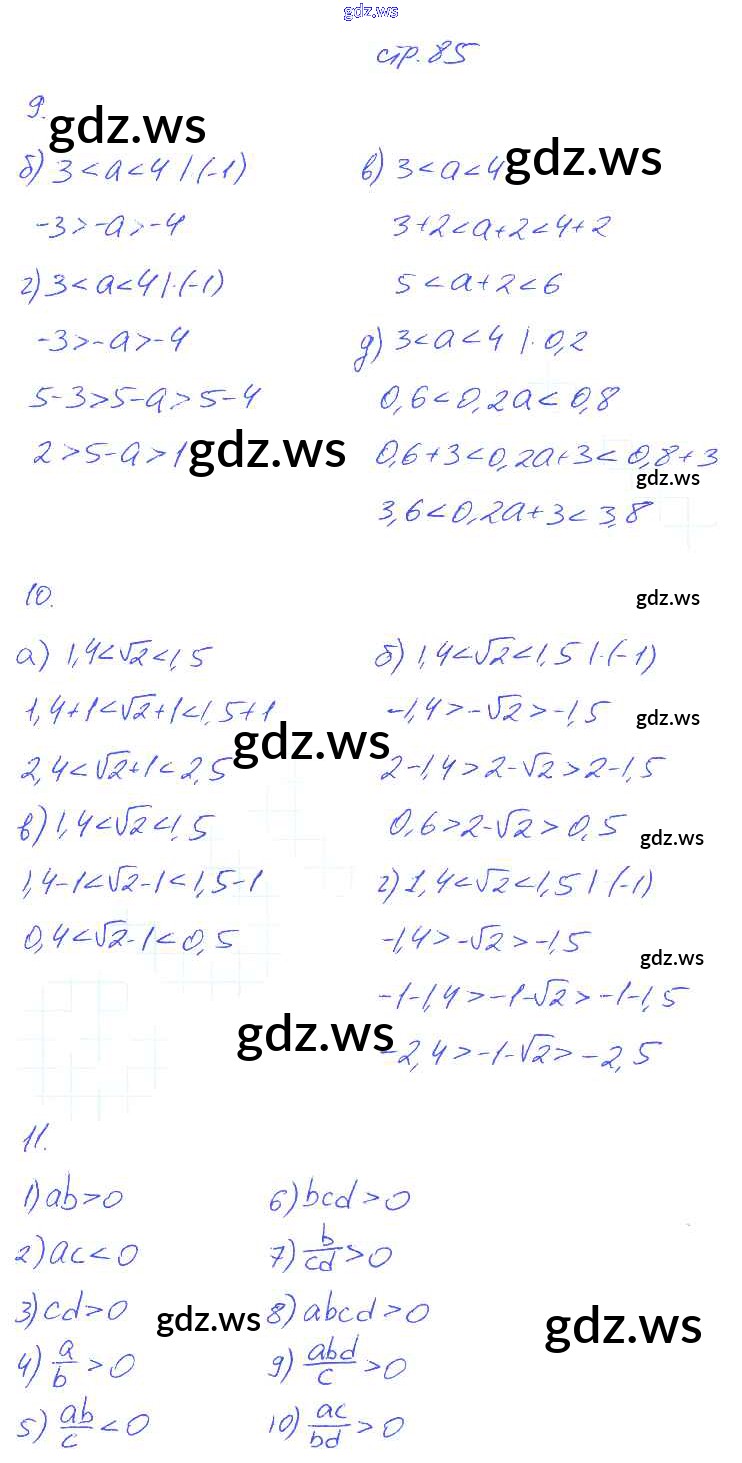 gdz.ws
стр. 85
9.
gdz.ws
б) 3 < a < 4 | (-1)
-3 > -a > -4
г) 3 < a < 4 | · (-1)
-3 > -a > -4
5-3 > 5-a > 5-4
2 > 5-a > 1
gdz.ws
в) 3 < a < 4
gdz.ws
3+2 < a+2 < 4+2
5 < a+2 < 6
д) 3 < a < 4 | · 0,2
0,6 < 0,2a < 0,8
0,6+3 < 0,2a+3 < 0,8+3
gdz.ws
3,6 < 0,2a+3 < 3,8
10.
gdz.ws
а) 1,4 < √2 < 1,5
1,4+1 < √2+1 < 1,5+1
gdz.ws
2,4 < √2+1 < 2,5
в) 1,4 < √2 < 1,5
1,4-1 < √2-1 < 1,5-1
0,4 < √2-1 < 0,5
б) 1,4 < √2 < 1,5 | · (-1)
-1,4 > -√2 > -1,5
gdz.ws
2-1,4 > 2-√2 > 2-1,5
0,6 > 2-√2 > 0,5
gdz.ws
г) 1,4 < √2 < 1,5 | (-1)
-1,4 > -√2 > -1,5
gdz.ws
-1-1,4 > -1-√2 > -1-1,5
gdz.ws
-2,4 > -1-√2 > -2,5
11.
1) ab > 0
2) ac < 0
3) cd > 0
gdz.ws
4) a/b > 0
5) ab/c < 0
6) bcd > 0
7) b/cd > 0
8) abcd > 0
gdz.ws
9) abd/c > 0
10) ac/bd > 0